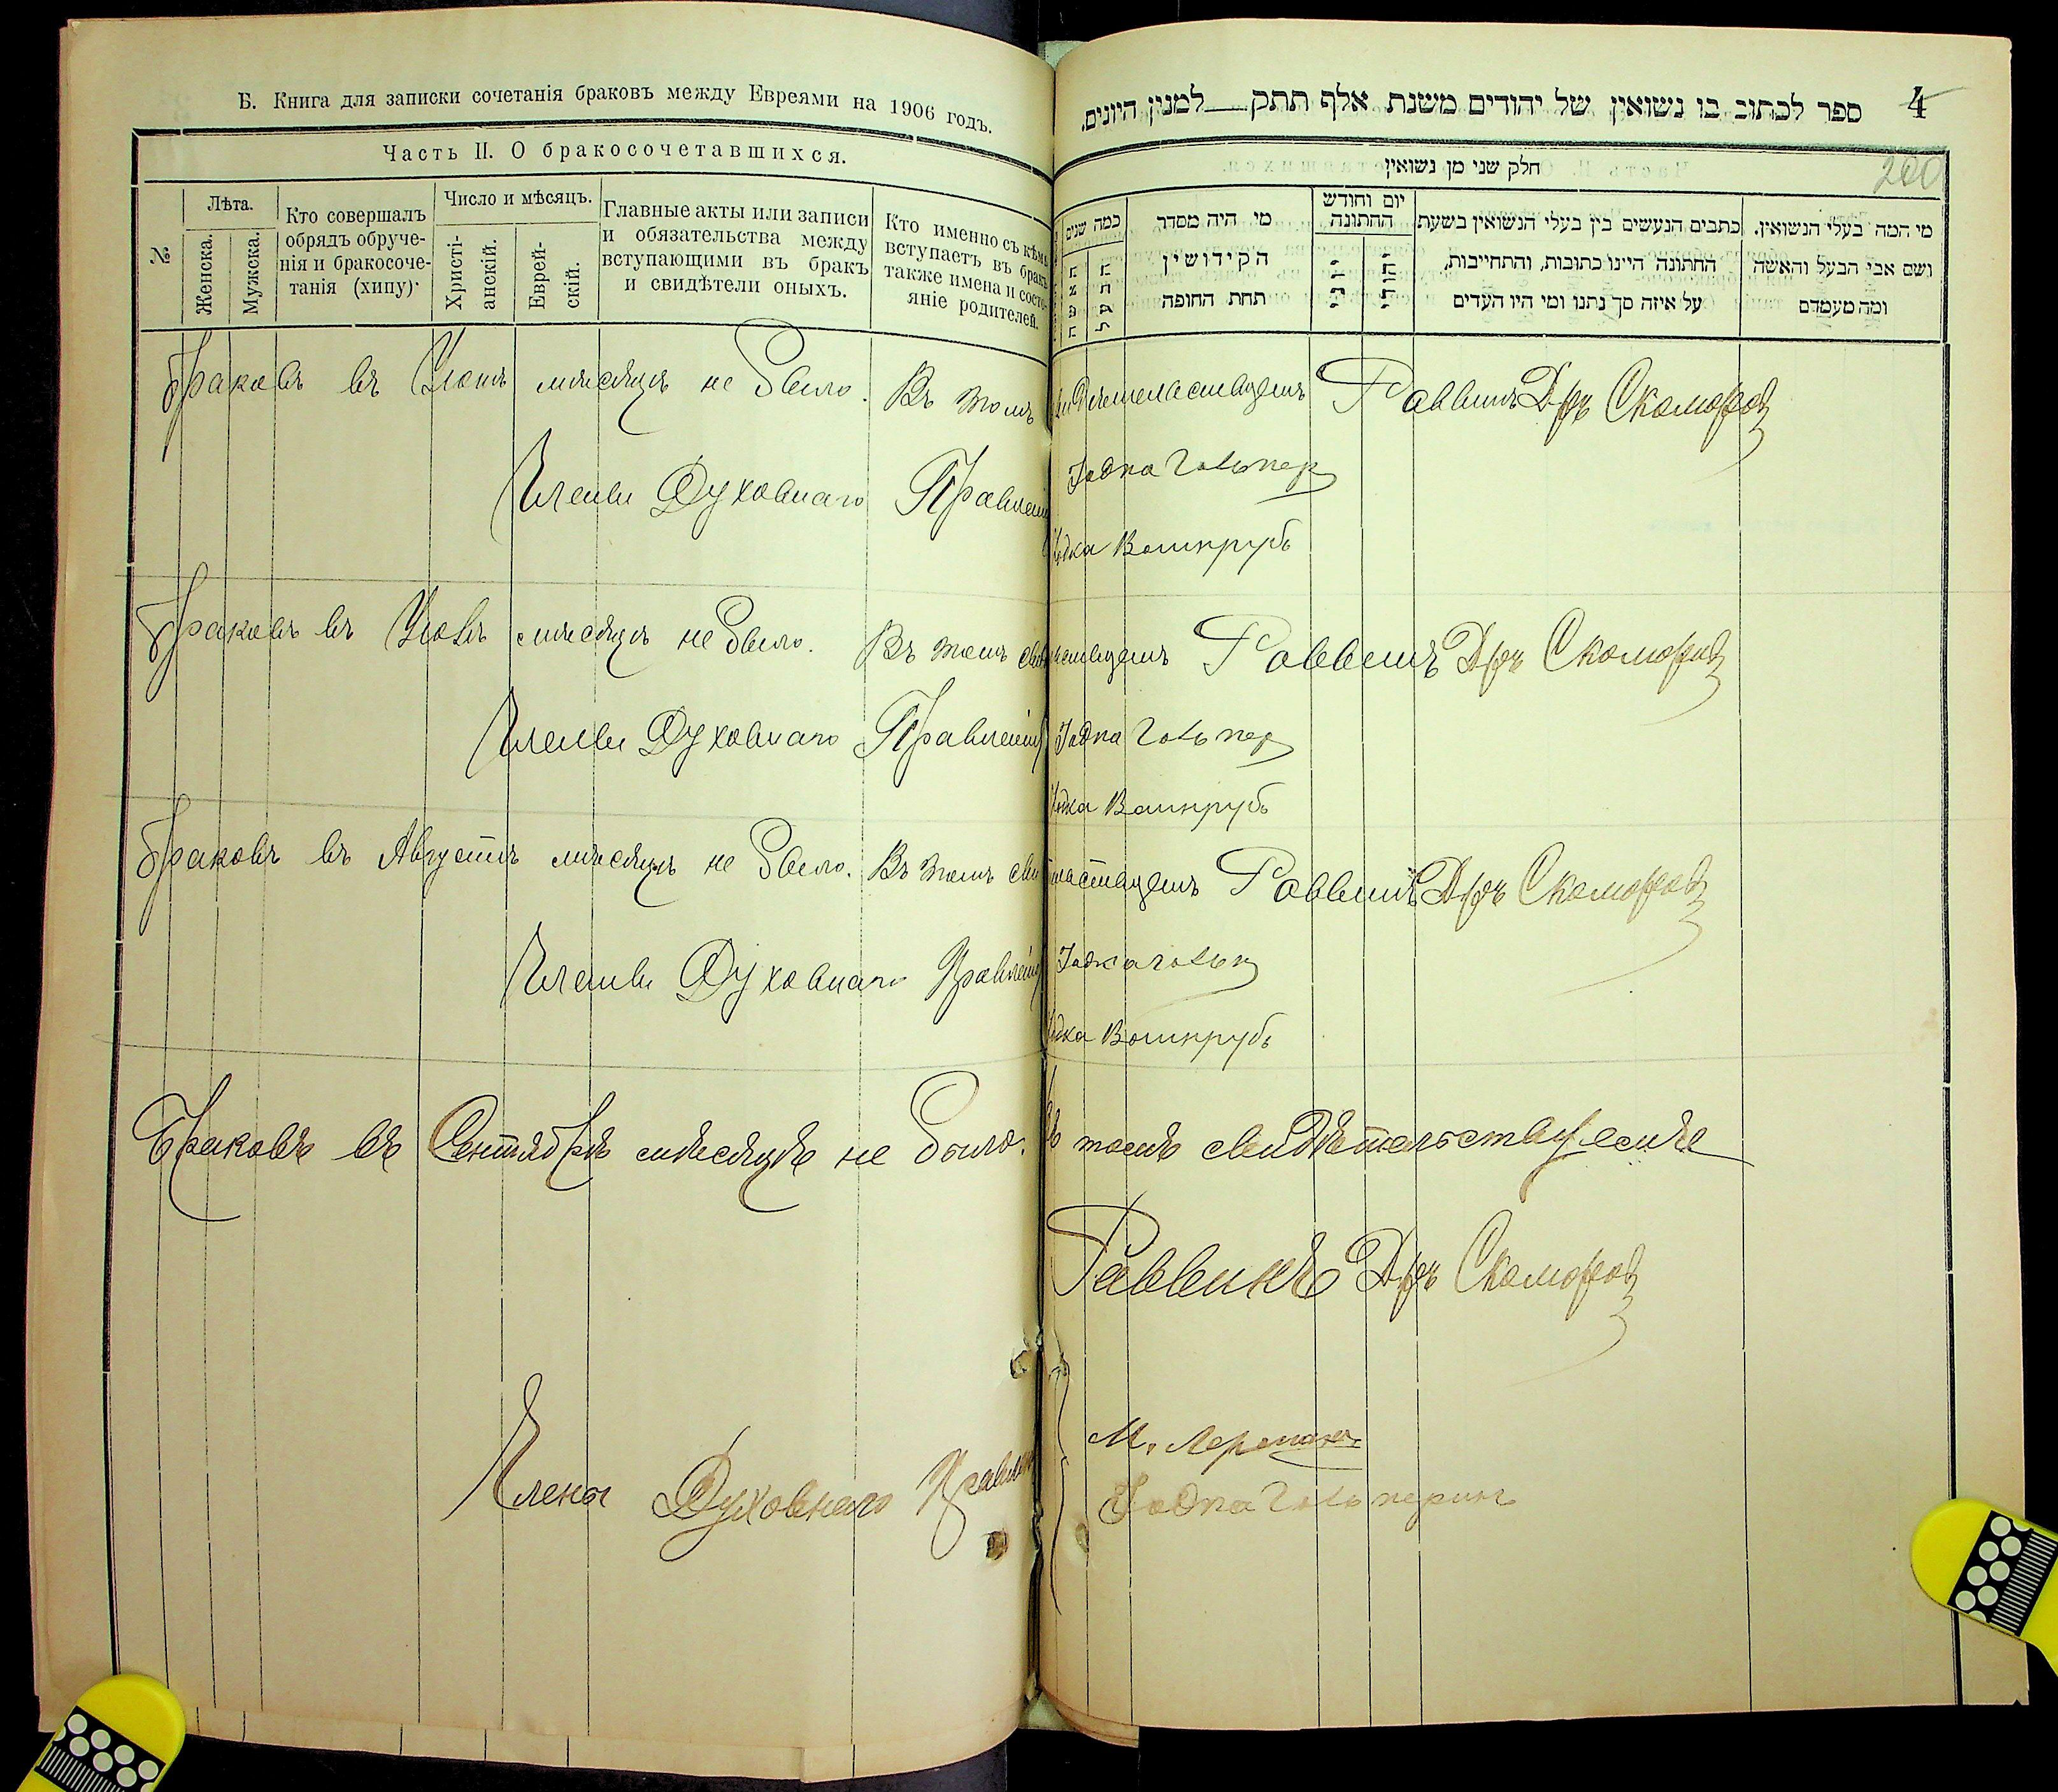 Б. Книга для записки сочетанія браковъ между Евреями на 1906 годъ.
Часть II. О бракосочетавшихся.
№
Лѣта.
Женска.
Мужска.
Кто совершалъ
обрядъ обруче-
нія и бракосоче-
танія (хипу).
Число и мѣсяцъ.
Христі-
анскій.
Еврей-
скій.
Главные акты или записи
и обязательства между
вступающими въ бракъ
и свидѣтели оныхъ.
Кто именно съ кѣмъ
вступаетъ въ бракъ
также имена и состо-
яніе родителей.
ספר לכתוב בו נשואין של יהודים משנת אלף תתק למנין היונים.
4
200
חלק שני מן נשואין
מי המה בעלי הנשואין.
ושם אבי הבעל והאשה
ומה מעמדם
כתבים הנעשים בין בעלי הנשואין בשעת
החתונה היינו כתובות, והתחייבות,
על איזה סך נתנו ומי היו העדים
יום וחודש
החתונה
יהודי
יוני
מי היה מסדר
הקידושין
תחת החופה
כמה שנים
הבעל
האשה
Браковъ въ Іюнѣ мѣсяцѣ не было. Въ томъ свидѣтельствуемъ Раввинъ Дръ Скоморов
Члены Духовнаго Правленія
Браковъ въ Іюлѣ мѣсяцѣ не было. Въ томъ свидѣтельствуемъ Раввинъ Дръ Скоморов
Члены Духовнаго Правленія
Браковъ въ Августѣ мѣсяцѣ не было. Въ томъ свидѣтельствуемъ Раввинъ Дръ Скоморов
Члены Духовнаго Правленія
Браковъ въ Сентябрѣ мѣсяцѣ не было. Въ томъ свидѣтельствуемъ
Раввинъ Дръ Скоморов
Члены Духовнаго Правленія
М. Лерманъ